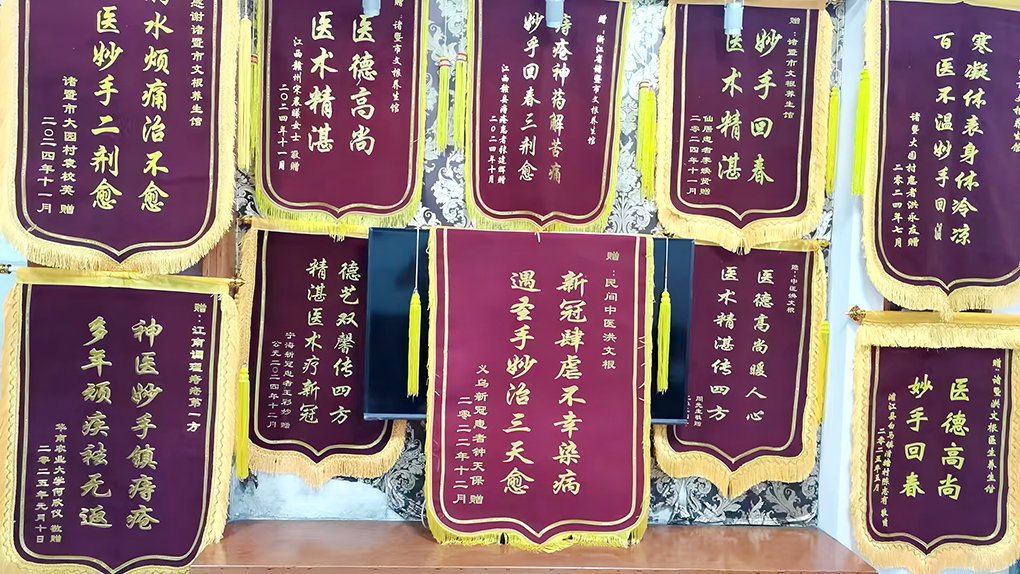 感谢诸暨市文根养生馆
水烦痛治不愈
医妙手二剂愈
诸暨市大园村袁校英 赠
二〇二四年十一月
赠：诸暨市文根养生馆
医德高尚
医术精湛
江西赣州宋
士 敬赠
二〇二四年十一月
赠：浙江省诸暨市文根养生馆
痔疮神药解苦痛
妙手回春三剂愈
江西赣县
患者张建辉赠
二〇二四年十月
赠：诸暨市文根养生馆
妙手回春
医术精湛
仙居患者李焕贤赠
二零二四年十一月
寒凝体表身体冷凉
百医不温妙手回
诸暨大园村患者洪永友赠
二零二四年七月
赠：江南调理痔疮第一方
神医妙手镇痔疮
多年顽疾祛无返
华南农业大学何
仪 敬赠
二〇二五年元月十日
德艺双馨传四方
精湛医术疗新冠
宁海新冠患者王彩妙 赠
公元二〇二四年十二月
赠：民间中医洪文根
新冠肆虐不幸染病
遇圣手妙治三天愈
义乌新冠患者钟天保 赠
二零二二年十二月
赠：中医洪文根
医德高尚暖人心
医术精湛传四方
周先生敬赠
赠：诸暨洪文根医生养生馆
医德高尚
妙手回春
浦江县白马镇清塘村陈忠省 敬赠
二零二五年五月